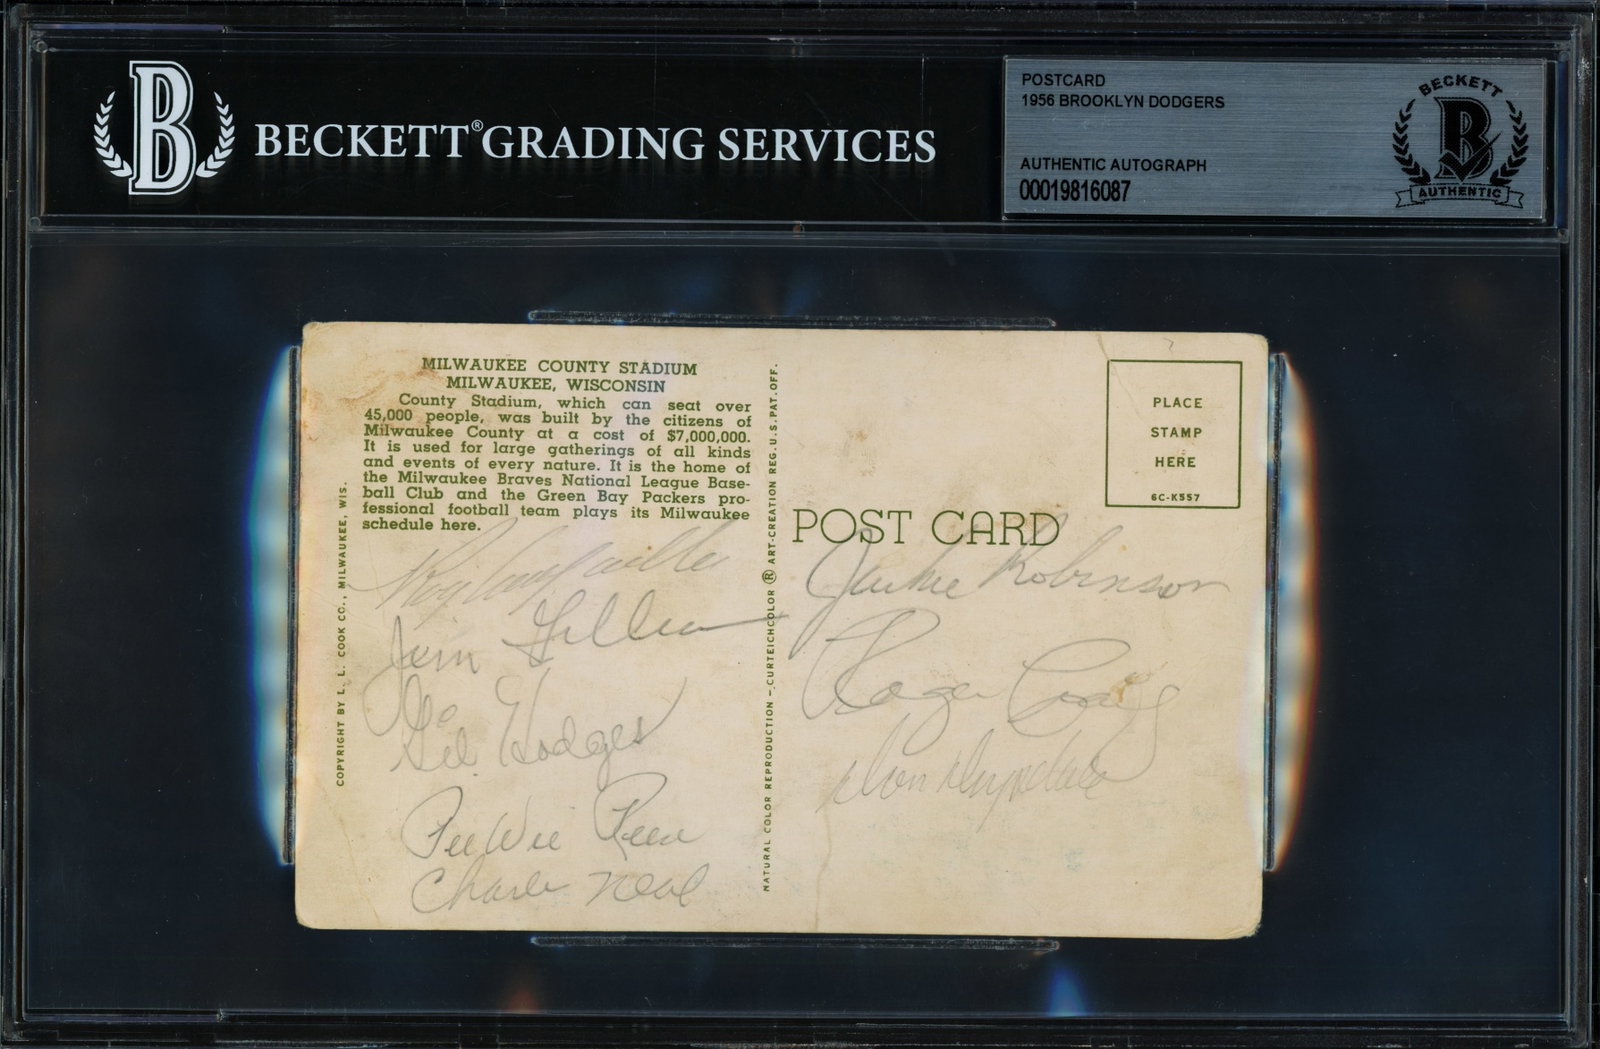 BECKETT® GRADING SERVICES
POSTCARD
1956 BROOKLYN DODGERS
AUTHENTIC AUTOGRAPH
00019816087
BECKETT
B
AUTHENTIC
MILWAUKEE COUNTY STADIUM
MILWAUKEE, WISCONSIN
County Stadium, which can seat over
45,000 people, was built by the citizens of
Milwaukee County at a cost of $7,000,000.
It is used for large gatherings of all kinds
and events of every nature. It is the home of
the Milwaukee Braves National League Base-
ball Club and the Green Bay Packers pro-
fessional football team plays its Milwaukee
schedule here.
COPYRIGHT BY L. L. COOK CO., MILWAUKEE, WIS.
Roy Campanella
Jim Gilliam
Gil Hodges
PeeWee Reese
Charlie Neal
NATURAL COLOR REPRODUCTION - CURTEICHCOLOR ® ART-CREATION REG. U.S. PAT. OFF.
PLACE
STAMP
HERE
6C-K557
POST CARD
Jackie Robinson
Roger Craig
Don Drysdale